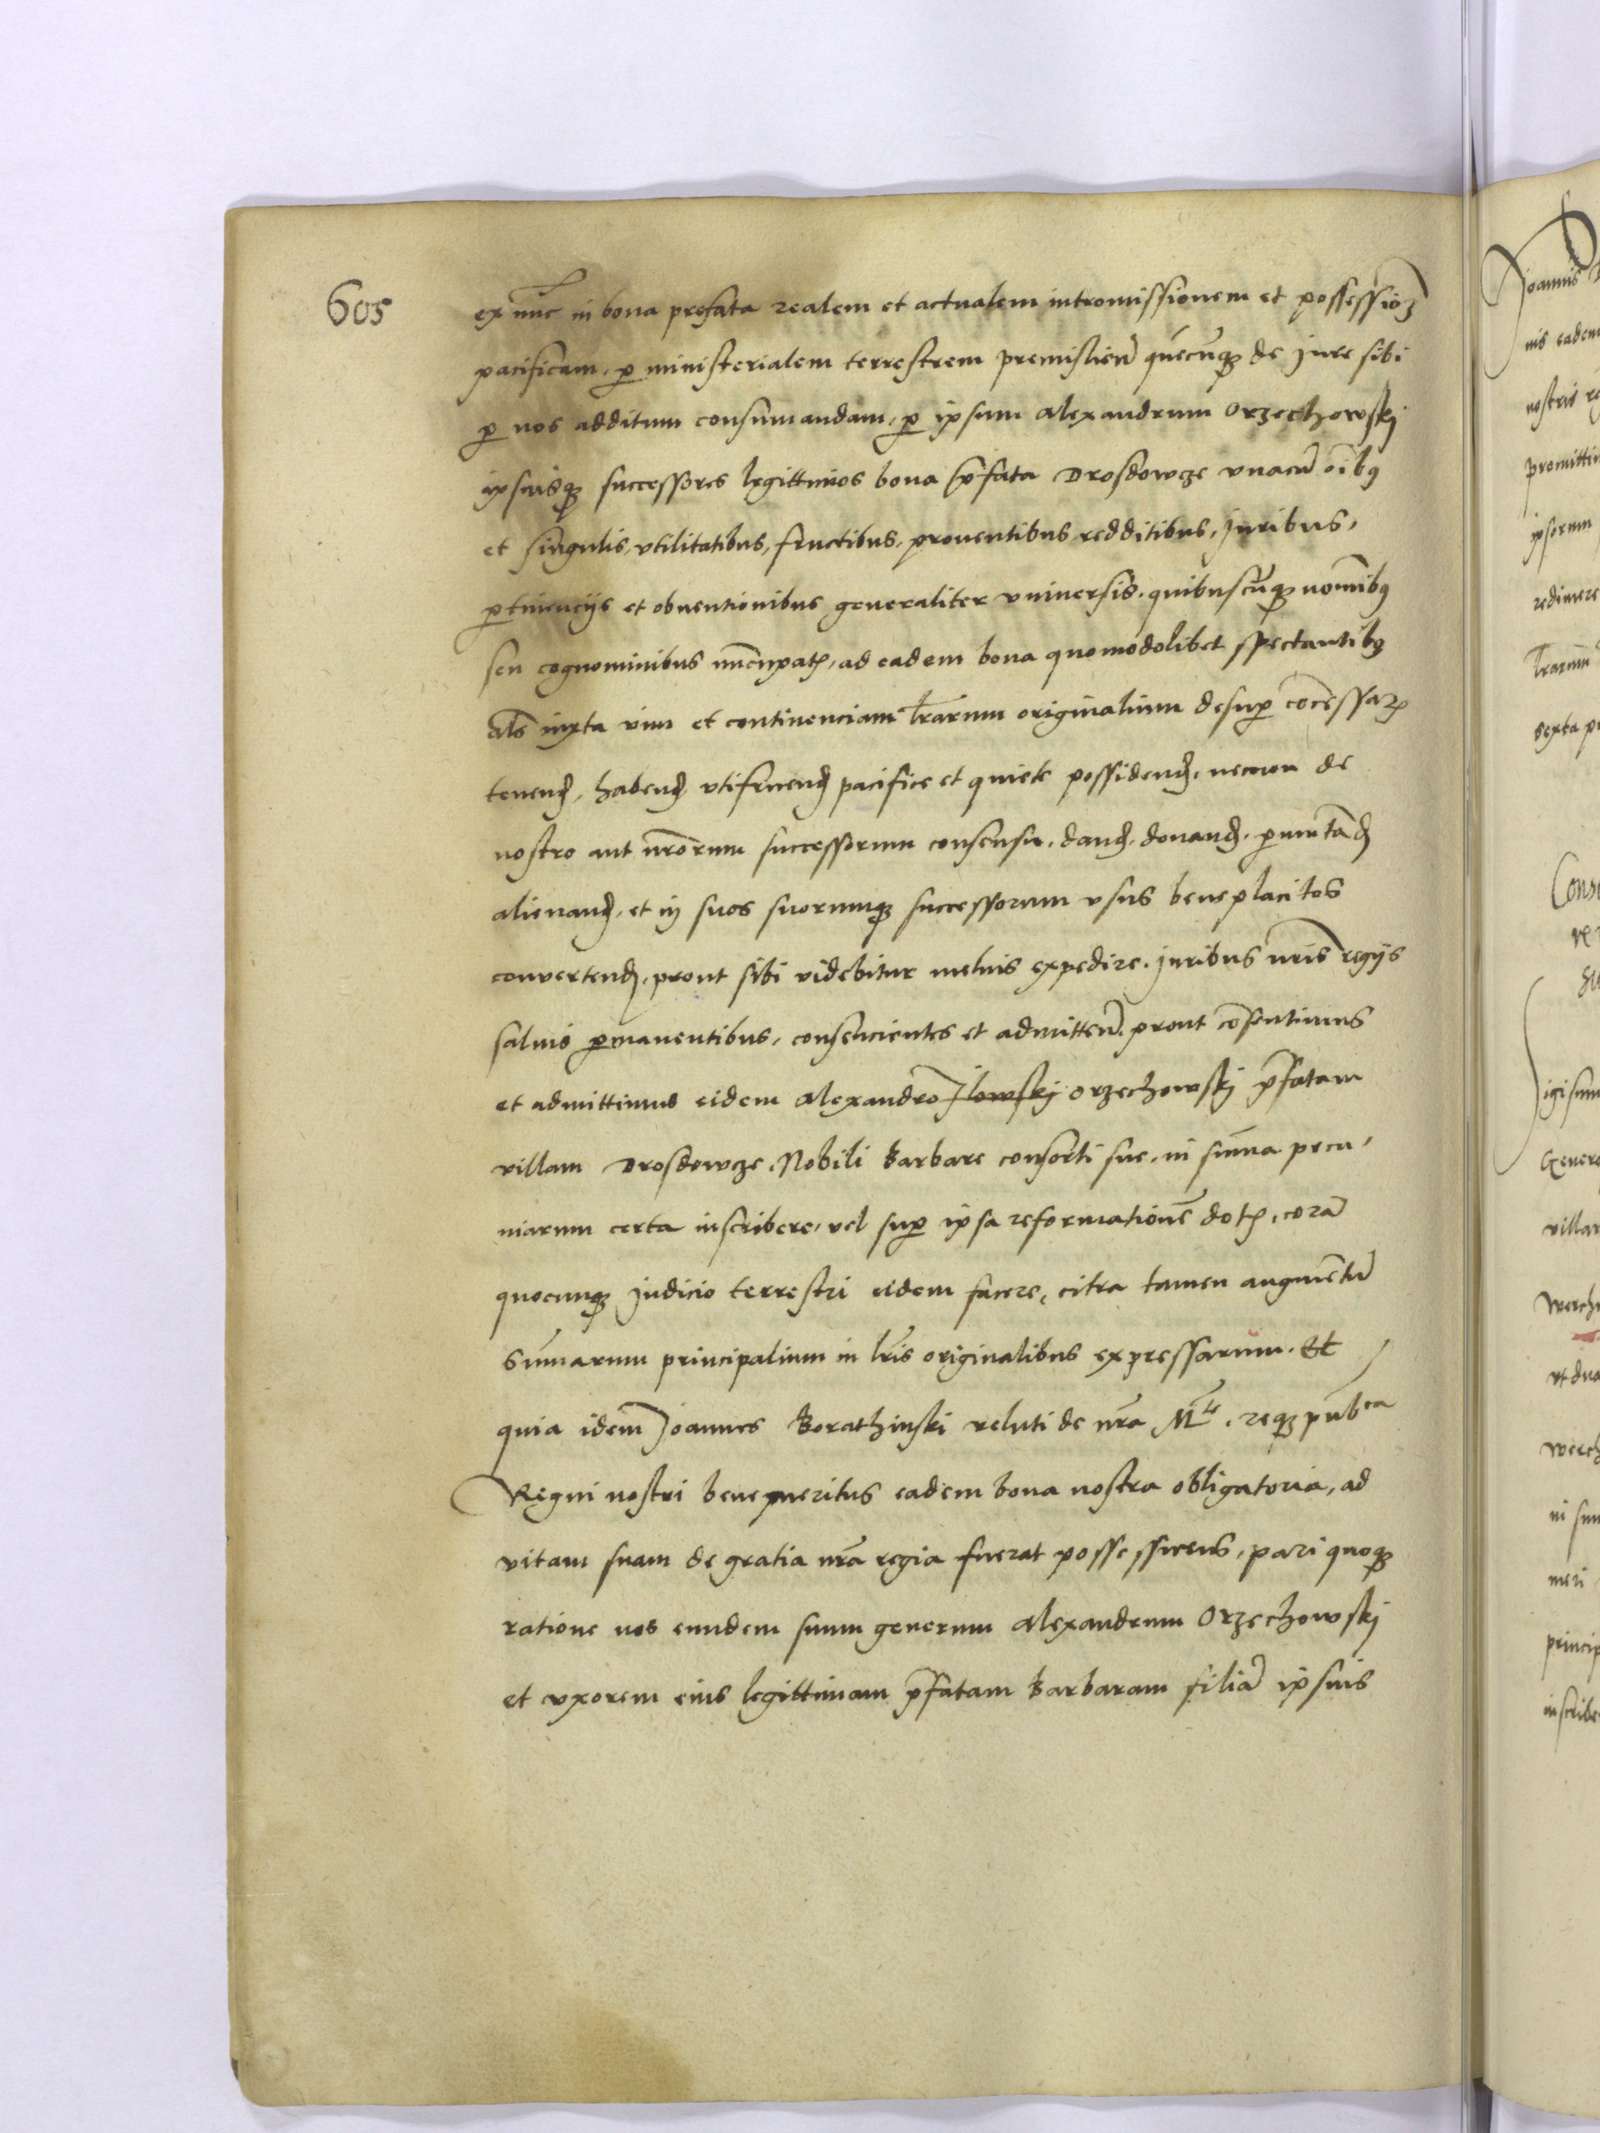 605
ex nūc in bona prefata realem et actualem intromissionem et possessioȝ
pacificam, ꝑ ministerialem terrestrem premislieñ quēcūqꝫ de jure sibi
ꝑ nos additum consumandam, ꝑ ipsum Alexandrum Orzechowskj
ipsiusqꝫ successores legittimos bona p̄fata Drosdowcze vnacū oībꝰ
et singulis, vtilitatibus, fructibus, prouentibus redditibus, juribus,
ꝑtinencijs et obuentionibus generaliter vniuersis. quibuscūqꝫ nomībꝰ
seu cognominibus nūcupatꝭ, ad eadem bona quomodolibet spectantibꝰ
als̄ iuxta vim et continenciam lr̄arum originalium desuꝑ cōcessaꝝ
tenenđ, habenđ vtifruenđ pacifice et quiete possidenđ, necnon de
nostro aut nr̄orum successorum consensu, danđ, donanđ, ꝑmutāđ
alienanđ, et in suos suorumqꝫ successorum vsus beneplacitos
convertenđ, prout sibi videbitur melius expedire. Juribus nr̄is regijs
saluis ꝑmanentibus, consencientes et admitteñ. prout cōsentimus
et admittimus eidem Alexandro Jlowskj Orzechowskj p̄fatam
villam Drosdowcze, Nobili Barbare consorti sue, in sum̄a pecu,
niarum certa inscribere, vel suꝑ ipsa reformationē dotꝭ, corā
quocunqꝫ judicio terrestri eidem facere, citra tamen augmentū
sum̄arum principalium in lr̄is originalibus expressarum. Et
quia idem Joannes Borathinski veluti de nr̄a M̄te, reqꝫ pub̄ca
Regni nostri benemeritus eadem bona nostra obligatoria, ad
vitam suam de gratia nr̄a regia fuerat possessurus, pari quoqꝫ
ratione nos eundem suum generum Alexandrum Orzechowskj
et vxorem eius legittimam p̄fatam Barbaram filiā ipsius
Joannis
nis eadem
nostris
promittim
ipsorum
redimere
lr̄arum
sexta
Cons
Sigism
Genero
villa
werch
vt dua
werch
in sum
meri
princip
inscribe